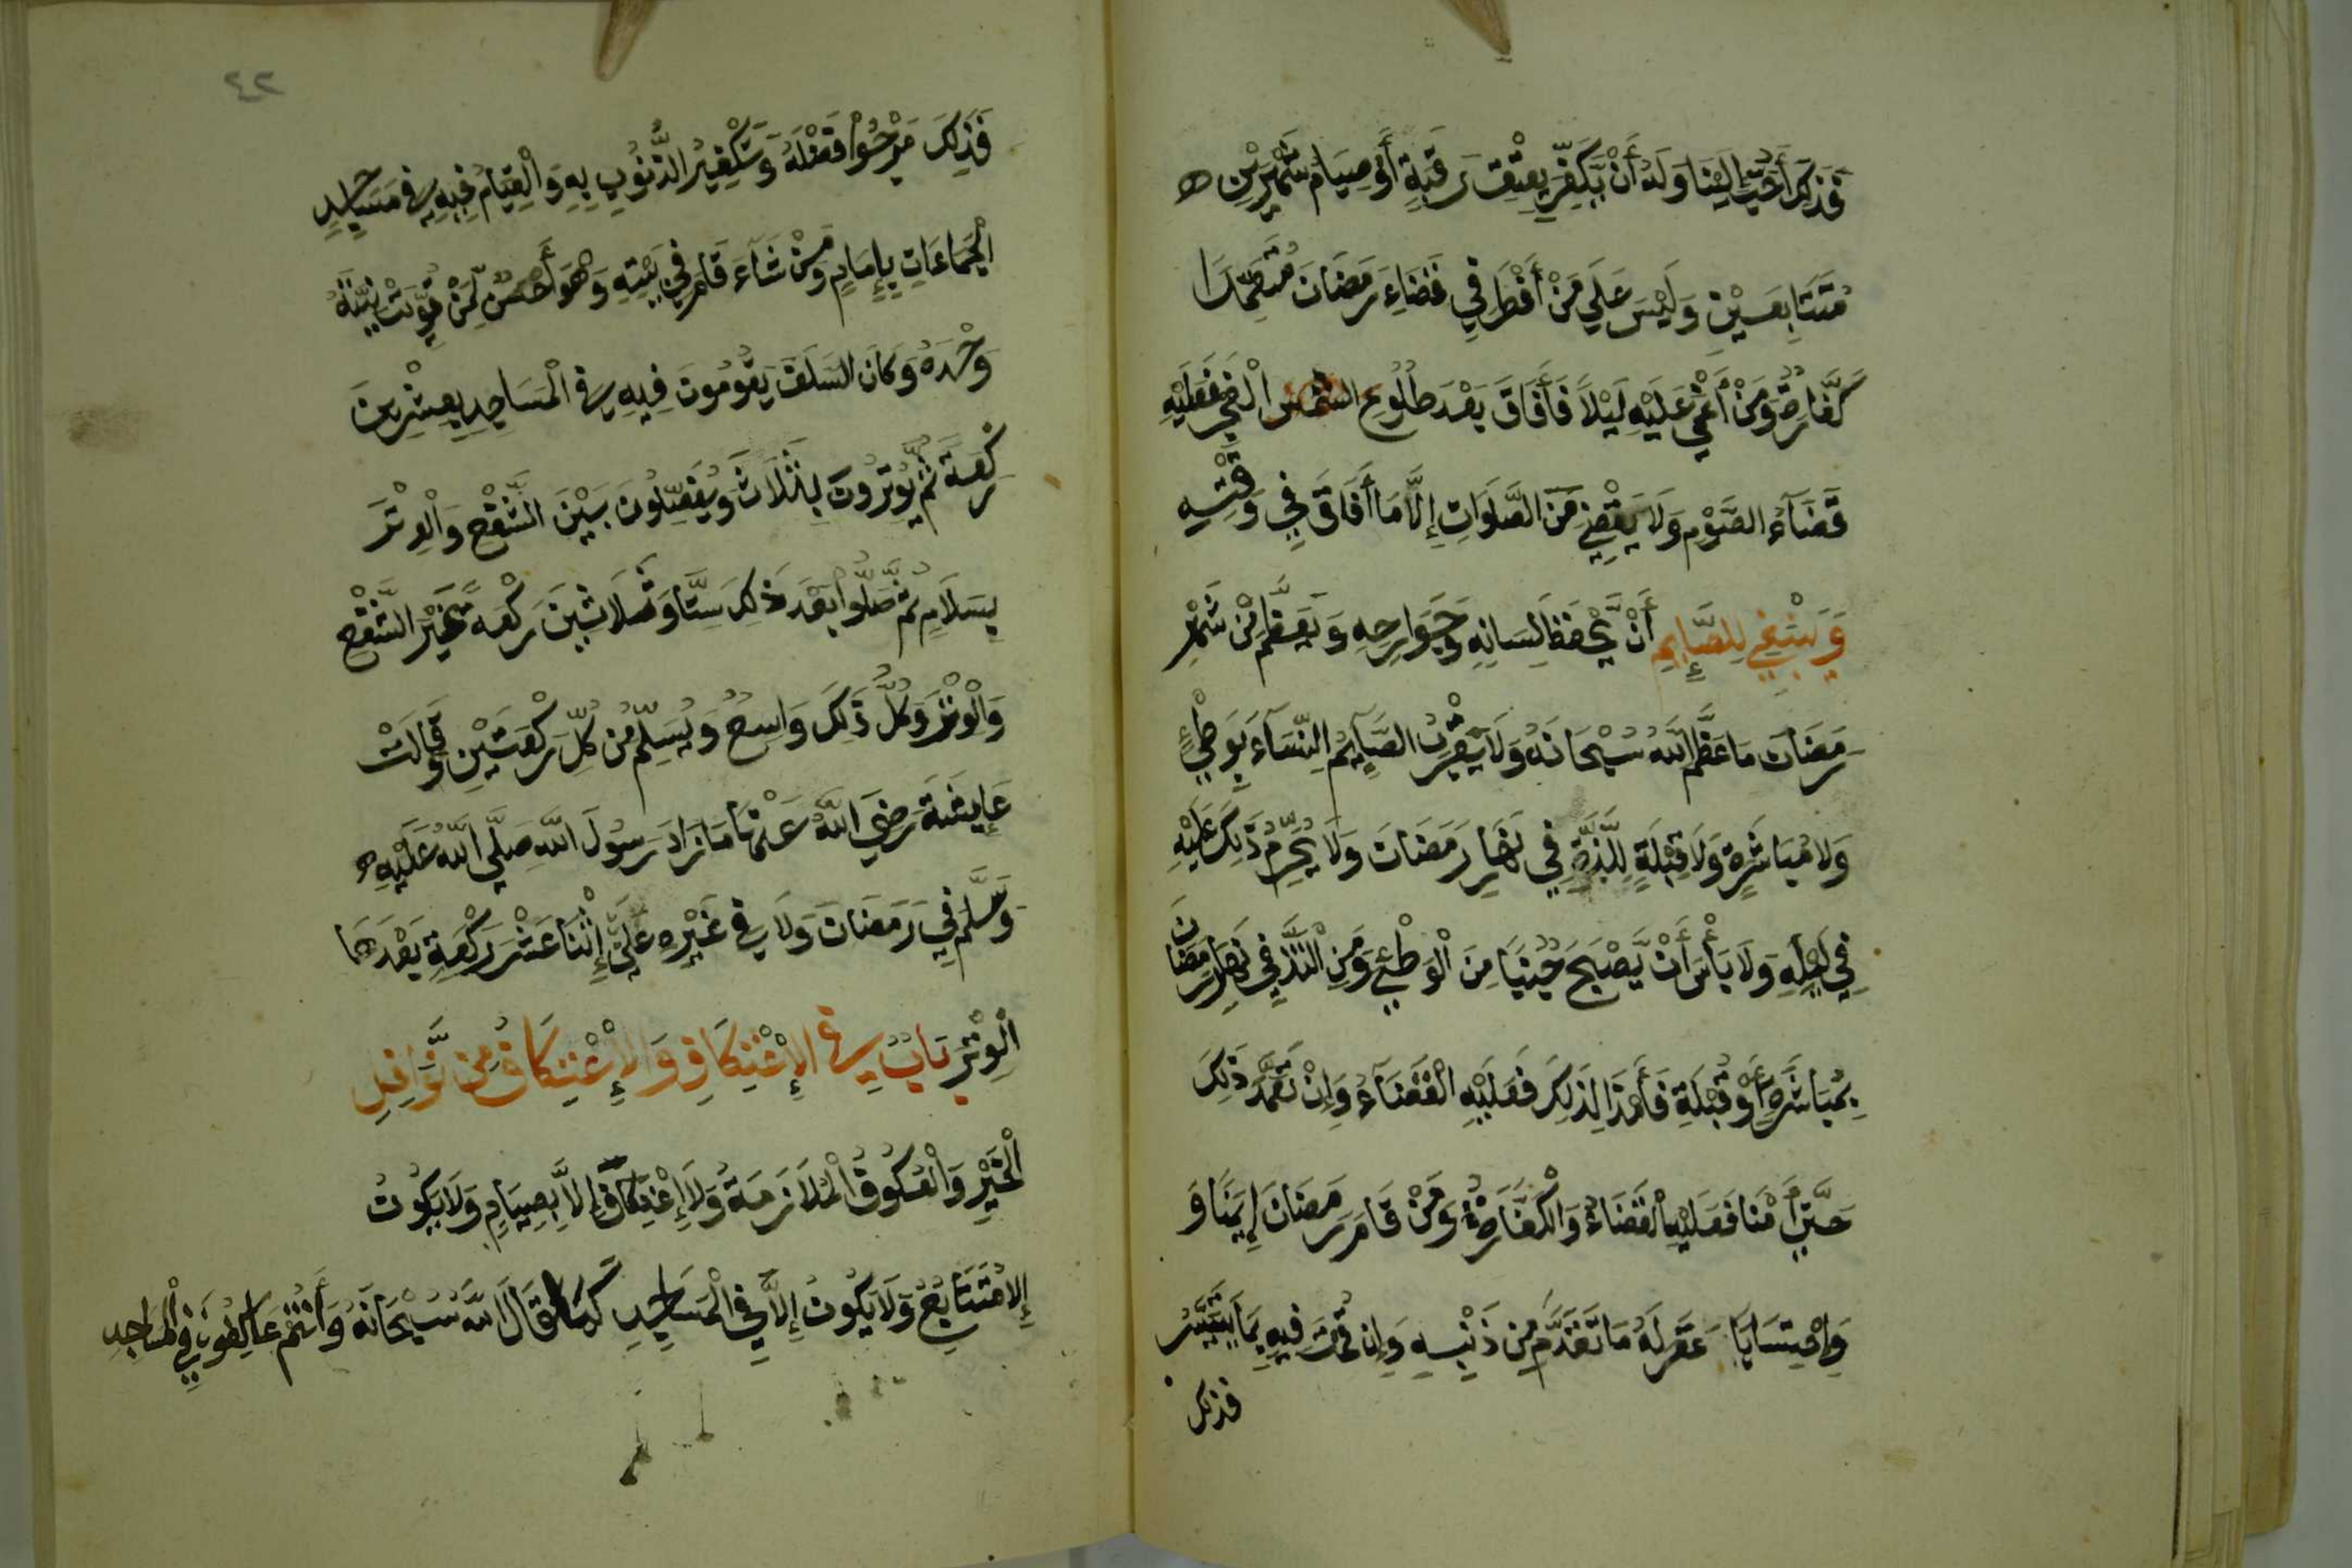 فَذَلِكَ أَحَبُّ إِلَيْنَا وَلَهُ أَنْ يُّكَفِّرَ بِعِتْقِ رَقَبَةٍ أَوْ صِيَامِ شَهْرَيْنِ
مُتَتَابِعَيْنِ وَلَيْسَ عَلَي مَنْ أَفْطَرَ فِي قَضَاءِ رَمَضَانَ مُتَعَمِّدًا
كَفَّارَةٌ وَمَنْ أُغْمِيَ عَلَيْهِ لَيْلًا فَأَفَاقَ بَعْدَ طُلُوعِ الشمس الْفَجْرِ فَعَلَيْهِ
قَضَآءُ الصَّوْمِ وَلَا يَقْضِي مِنَ الصَّلَوَاتِ إِلَّا مَا أَفَاقَ فِي وَقْتِهِ
وَيَنْبَغِي لِلصَّآئِمِ أَنْ يَّحْفَظَ لِسَانِهِ وَجَوَارِحِهِ وَيُعَظِّمَ مِنْ شَهْرِ
رَمَضَانَ مَا عَظَّمَ اللَّهُ سُبْحَانَهُ وَلَا يَقْرُبُ الصَّآئِمُ النِّسَآءَ بِوَطْئٍ
وَلَا مُبَاشَرَةٍ وَلَا قُبْلَةٍ لِلَّذَّةِ فِي نَهَارِ رَمَضَانَ وَلَا يَحْرُمُ ذَلِكَ عَلَيْهِ
فِي لَيْلِهِ وَلَا بَأْسَ أَنْ يَّصْبَحَ جُنُبًا مِنَ الْوَطْئِ وَمَنِ الْتَذَّ فِي نَهَارِ رَمَضَانَ
بِمُبَاشَرَةٍ أَوْ قُبْلَةٍ فَأَمْذَا لِذَلِكَ فَعَلَيْهِ الْقَضَآءُ وَإِنْ تَعَمَّدَ ذَلِكَ
حَتَّى أَمْنَا فَعَلَيْهِ الْقَضَاءُ وَالْكَفَّارَةُ وَمَنْ قَامَ رَمَضَانَ إِيمَنًا وَ
وَاحْتِسَابًا غَفَرَ لَهُ مَا تَقَدَّمَ مِن ذَنْبِهِ وَإِن قُمْتَ فِيهِ بِمَا يَتَيَسَّرُ
فذلك
٤٢
فَذَلِكَ مَرْجُوْا فَضْلُهُ وَتَكْفِيرُ الذُّنُوبِ بِهِ وَالْقِيَامُ فِيهِ فِي مَسَاجِدِ
الْجَمَاعَاتِ بِإِمَامٍ وَمَنْ شَآءَ قَامَ فِي بَيْتِهِ وَهْوَ أَحْسَنُ لِمَنْ قُوِّيَتْ نِيَّتُهُ
وَحْدَهُ وَكَانَ السَلَفُ يَقُومُونَ فِيهِ فِي الْمَسَاجِدِ بِعِشْرِينَ
رَكْعَةً ثُمَّ يُوتِرُونَ بِثَلَاثٍ وَيَفْصِلُونَ بَيْنَ الشَّفْعِ وَالْوِتْرِ
بِسَلَامٍ ثُمَّ صَلُّوا بَعْدَ ذَلِكَ سِتًّا وَثَلَاثِينَ رَكْعَةً غَيْرَ الشَّفْعِ
وَالْوِتْرِ وَكُلُّ ذَلِكَ وَاسِعٌ وَيُسَلِّمُ مِن كُلِّ رَكْعَتَيْنِ وَقَالَتْ
عَايِشَةُ رَضِيَ اللَّهُ عَنْهَا مَا زَادَ رَسُولُ اللَّهِ صَلَّي اللَّهُ عَلَيْهِ
وَسَلَّمَ فِي رَمَضَانَ وَلَا فِي غَيْرِهِ عَلَيَّ إِثْنَا عَشْرَ رَكْعَةٍ بَعْدَهَا
الْوِتْرُ بَابٌ فِي الْإِعْتِكَافِ وَالْإِعْتِكَافُ مِن نَّوَافِلِ
الْخَيْرِ وَالْعُكُوفُ الْمُلَازَمَةُ وَلَا إِعْتِكَافَ إِلَّا بِصِيَامٍ وَلَا يَكُونُ
إِلَا مُتَتَابِعٌ وَلَا يَكُونُ إِلَّا فِي الْمَسَاجِدِ كَمَا قَالَ اللَّهُ سُبْحَانَهُ وَأَنْتُمْ عَاكِفُونَ فِي الْمَسَاجِدِ